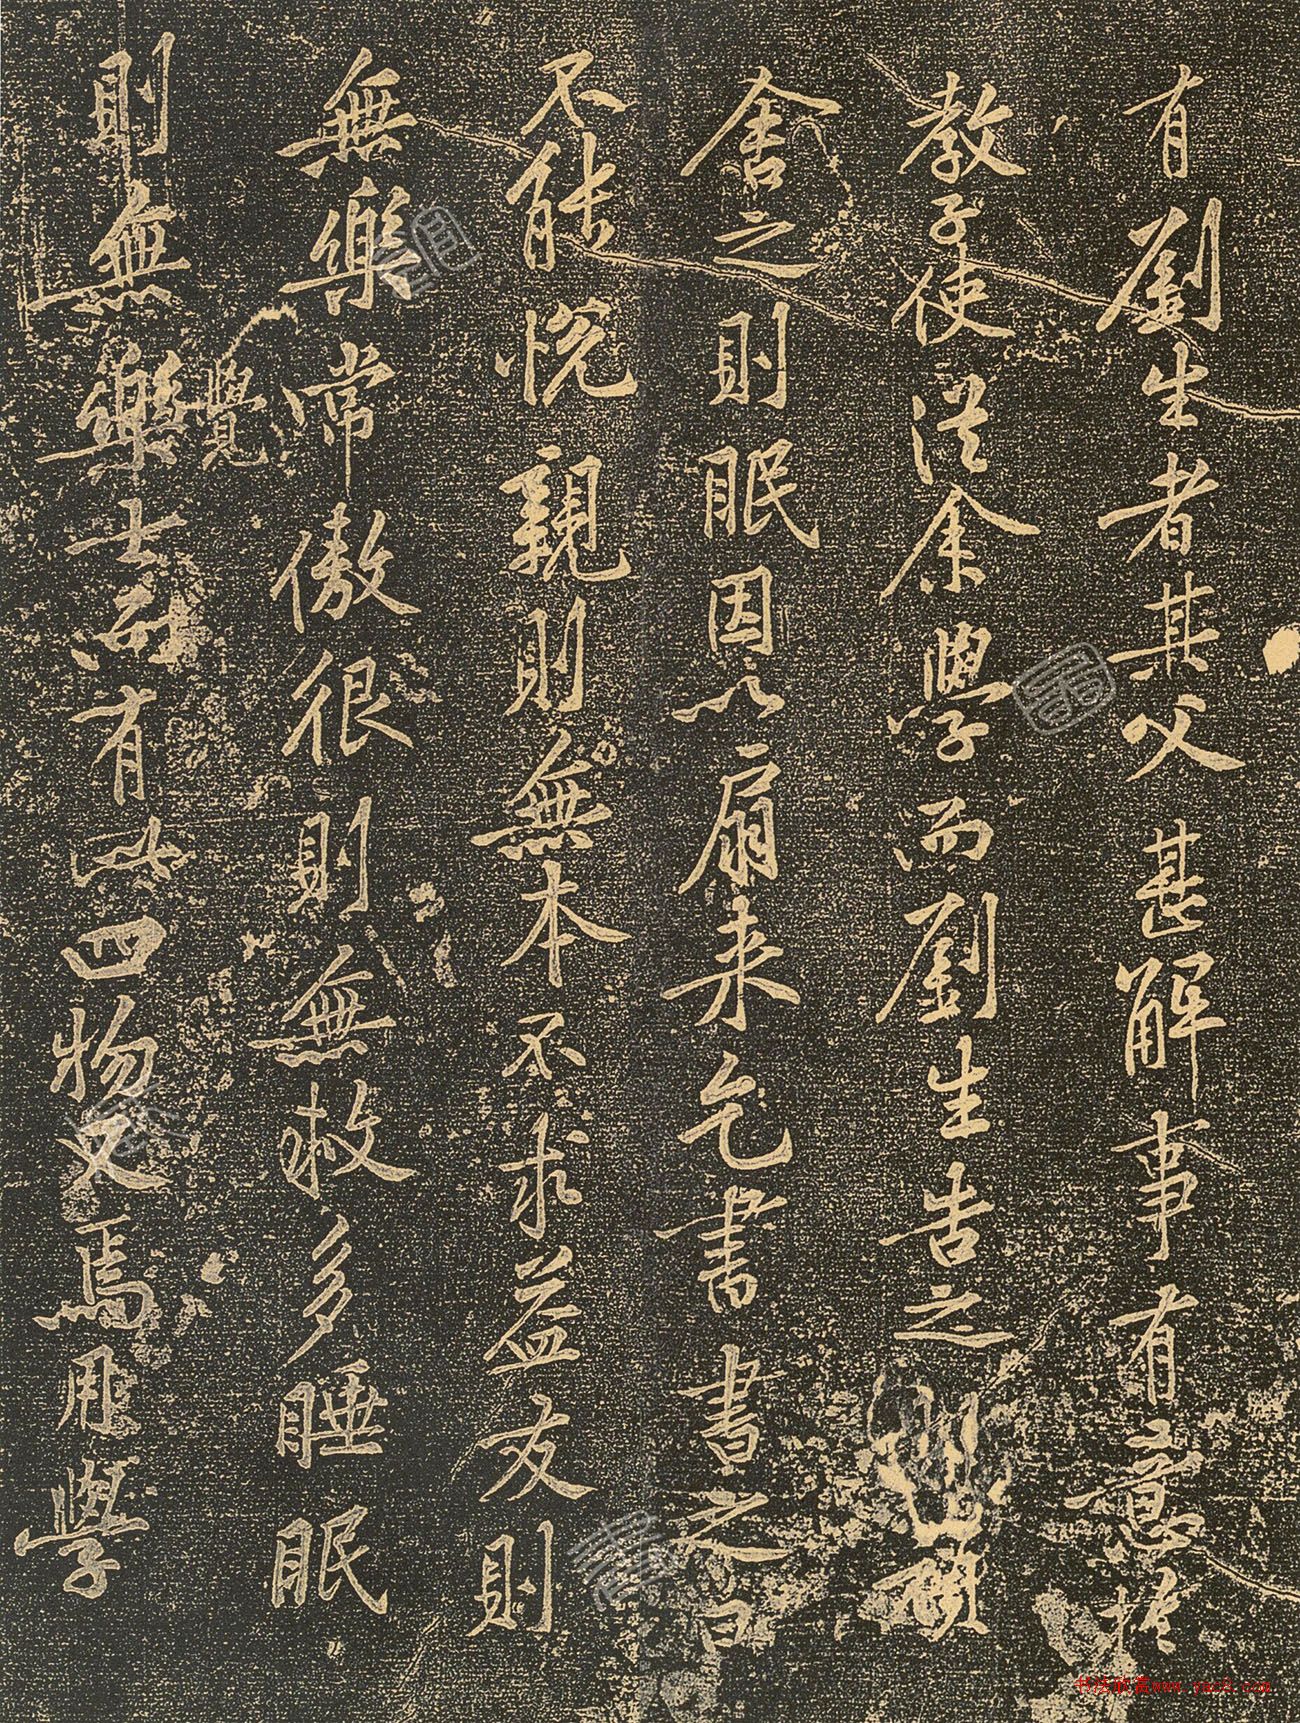 有劉生者其父甚解事有意於
教子使從余學而劉生告之頑
舍之則眠因以扇来乞書書之曰
不能悦親則無本不求益友則
無樂常傲很則無救多睡眠
則無樂覺士而有此四物又焉用學
书法欣赏www.yac8.com